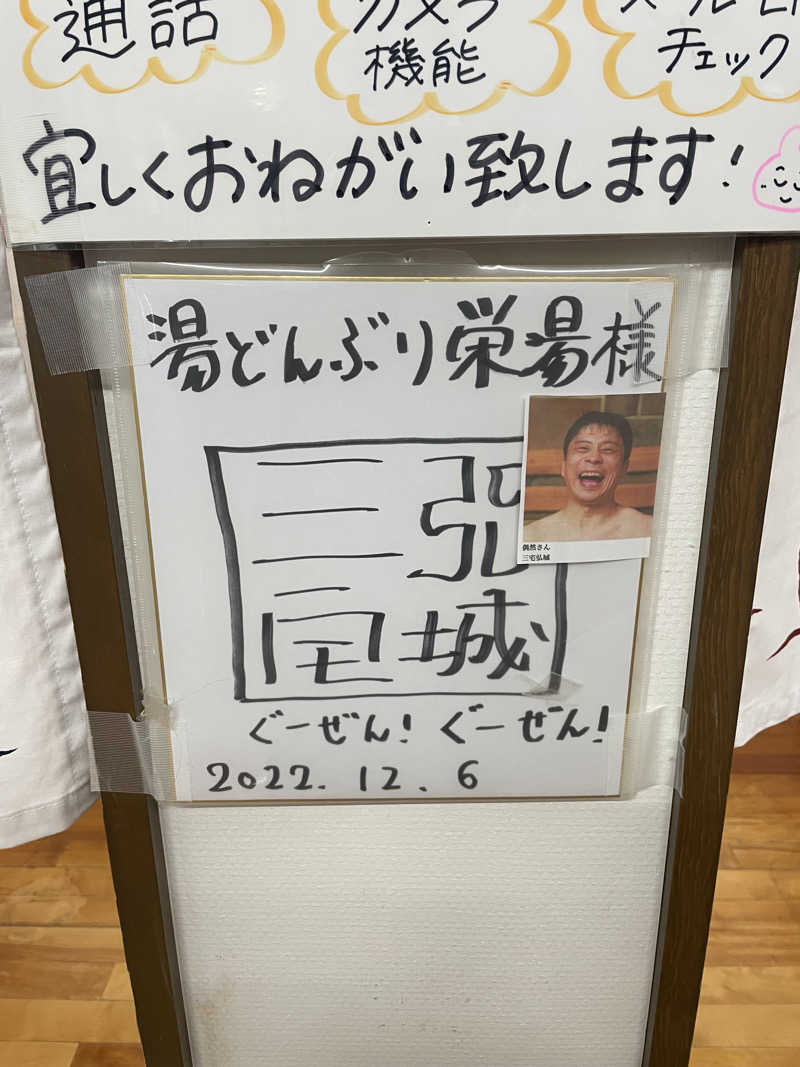 通話
カメラ
機能
チェック
宜しくおねがい致します!
湯どんぶり栄湯様
三宅
弘城
偶然さん
三宅弘城
ぐーぜん! ぐーぜん!
2022. 12. 6